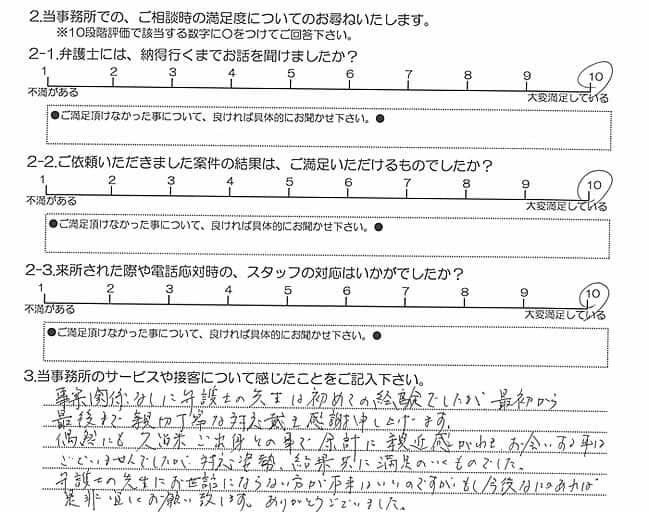 2.当事務所での、ご相談時の満足度についてのお尋ねいたします。
※10段階評価で該当する数字に〇をつけてご回答下さい。
2-1.弁護士には、納得行くまでお話を聞けましたか?
1 2 3 4 5 6 7 8 9 10
不満がある 大変満足している
●ご満足頂けなかった事について、良ければ具体的にお聞かせ下さい。●
2-2.ご依頼いただきました案件の結果は、ご満足いただけるものでしたか?
1 2 3 4 5 6 7 8 9 10
不満がある 大変満足している
●ご満足頂けなかった事について、良ければ具体的にお聞かせ下さい。●
2-3.来所された際や電話応対時の、スタッフの対応はいかがでしたか?
1 2 3 4 5 6 7 8 9 10
不満がある 大変満足している
●ご満足頂けなかった事について、良ければ具体的にお聞かせ下さい。●
3.当事務所のサービスや接客について感じたことをご記入下さい。
関係なしに弁護士の先生は初めての経験でしたが 最初から
最後まで親切丁寧な対応誠に感謝申し上げます。
偶然にも久留米ご出身との事で余計に親近感がわき お会いする事は
ございませんでしたが 対応姿勢、結果共に満足のいくものでした。
弁護士の先生にお世話にならない方が本来はいいのですが、もし今後なにかあれば
是非 にお願い致します。ありがとうございました。